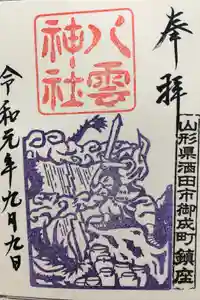 奉拝
山形県酒田市御成町鎮座
八雲
神社
令和元年九月九日